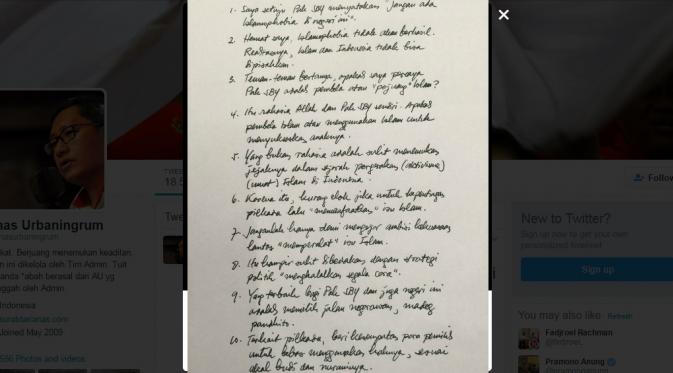 1. Saya setuju Pak SBY menyatakan "jangan ada
Islamophobia di negeri ini".
2. Hemat saya, Islamophobia tidak akan berhasil.
Realitasnya, Islam dan Indonesia tidak bisa
dipisahkan.
3. Teman-teman bertanya, apakah saya percaya
Pak SBY adalah pembela atau "pejuang" Islam?
4. Itu rahasia Allah dan Pak SBY sendiri. Apakah
pembela Islam atau menggunakan Islam untuk
menyukseskan anaknya.
5. Yang bukan rahasia adalah sulit menemukan
jejaknya dalam sejarah pergerakan (aktivisme)
(umat) Islam di Indonesia.
6. Karena itu, kurang elok jika untuk kepentingan
pilkada lalu "memanfaatkan" isu Islam.
7. Janganlah hanya demi mengejar ambisi kekuasaan
lantas "memperalat" isu Islam.
8. Itu hampir sulit dibedakan dengan strategi
politik "menghalalkan segala cara".
9. Yang terbaik bagi Pak SBY dan juga negeri ini
adalah memilih jalan negarawan, madeg
pandhito.
10. Terkait pilkada, beri kesempatan para pemilih
untuk bebas menggunakan haknya, sesuai
akal budi dan nuraninya.
×
nas Urbaningrum
nasurbaningrum
kat. Berjuang menemukan keadilan.
n ini dikelola oleh Tim Admin. Tuit
anda *abah berasal dari AU yg
nggah oleh Admin.
Indonesia
Joined May 2009
596 Photos and videos
TWEE
18.5
Twee
Follow
New to Twitter?
Sign up now to get your own
personalized timeline!
Sign up
You may also like · Refresh
Fadjroel Rachman
@fadjroeL
Pramono Anung